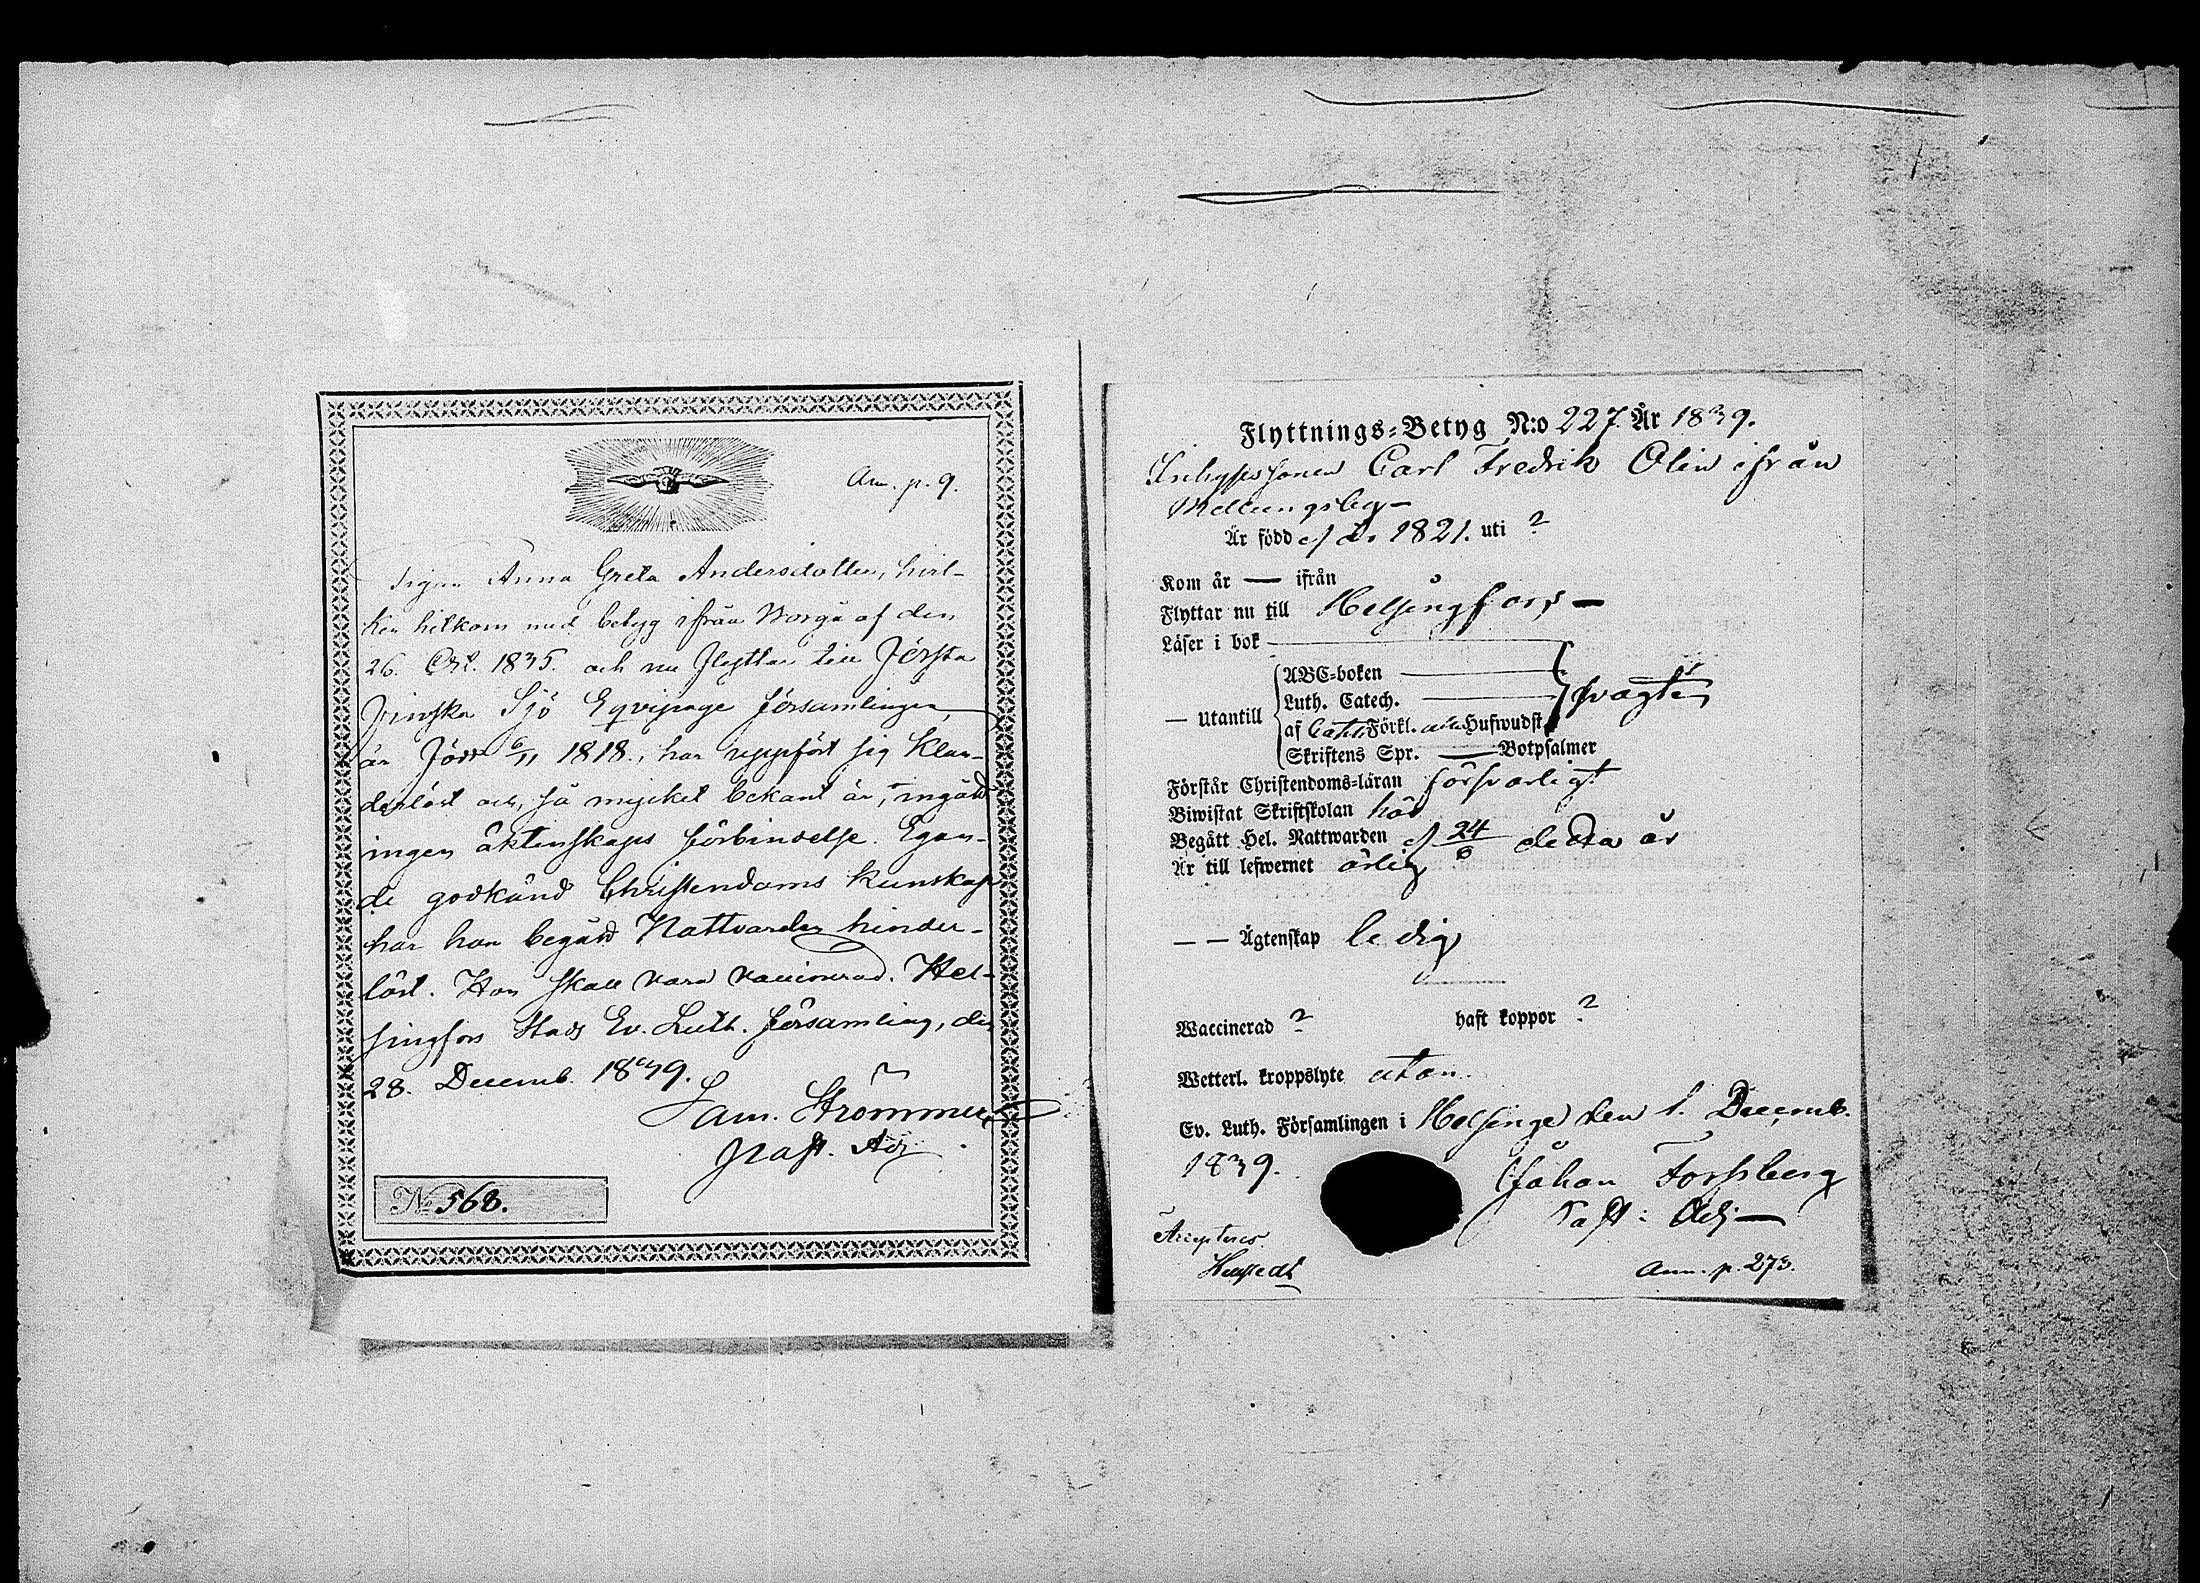 Ann. p. 9.
Pigan Anna Greta Andersdotter, hvil-
ken hitkom med betyg ifrån Borgå af den
26. Oct. 1835. och nu flyttar till Första
Finska Sjö Eqvipage församlingen,
är född 6/11 1818., har uppfört sig klan-
derlöst och, så mycket bekant är, ingått
ingen äktenskaps förbindelse. Egan-
de godkänd Christendoms kunskap
har hon begått Nattvarden hinder-
löst. Hon skall vara vaccinerad. Hel-
singfors Stads Ev. Luth. församling, den
28. Decemb. 1839.
Sam. Strömmer
Past. Adj.
No 568.
Flyttnings-Betyg N:o 227. År 1839.
Inhysessonen Carl Fredrik Olin ifrån
Mellungsby
Är född år 1821. uti ?
Kom år — ifrån
Flyttar nu till Helsingfors —
Läser i bok
— utantill
ABC-boken
Luth. Catech.
af Förkl. Hufwudst.
Skriftens Spr. — Botpsalmer
svagt
Förstår Christendoms-läran försvarligt
Biwistat Skriftskolan har
Begått Hel. Nattwarden d 24/6 detta år
Är till lefwernet ärlig
— — Ägtenskap ledig
Waccinerad ? haft koppor ?
Wetterl. kroppslyte utan.
Ev. Luth. Församlingen i Helsinge den 1. Decemb.
1839.
Johan Forssberg
Past: Adj —
Ann. p. 273.